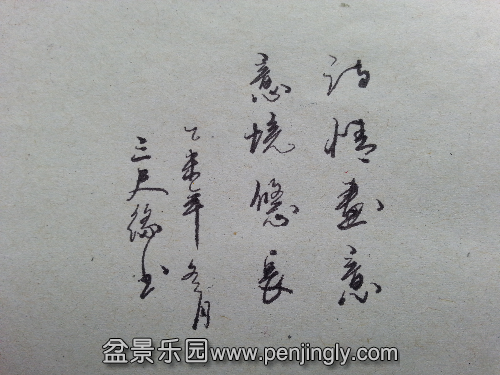 诗情画意
意境悠长
乙未年冬月
三尺缘书
盆景乐园www.penjingly.com